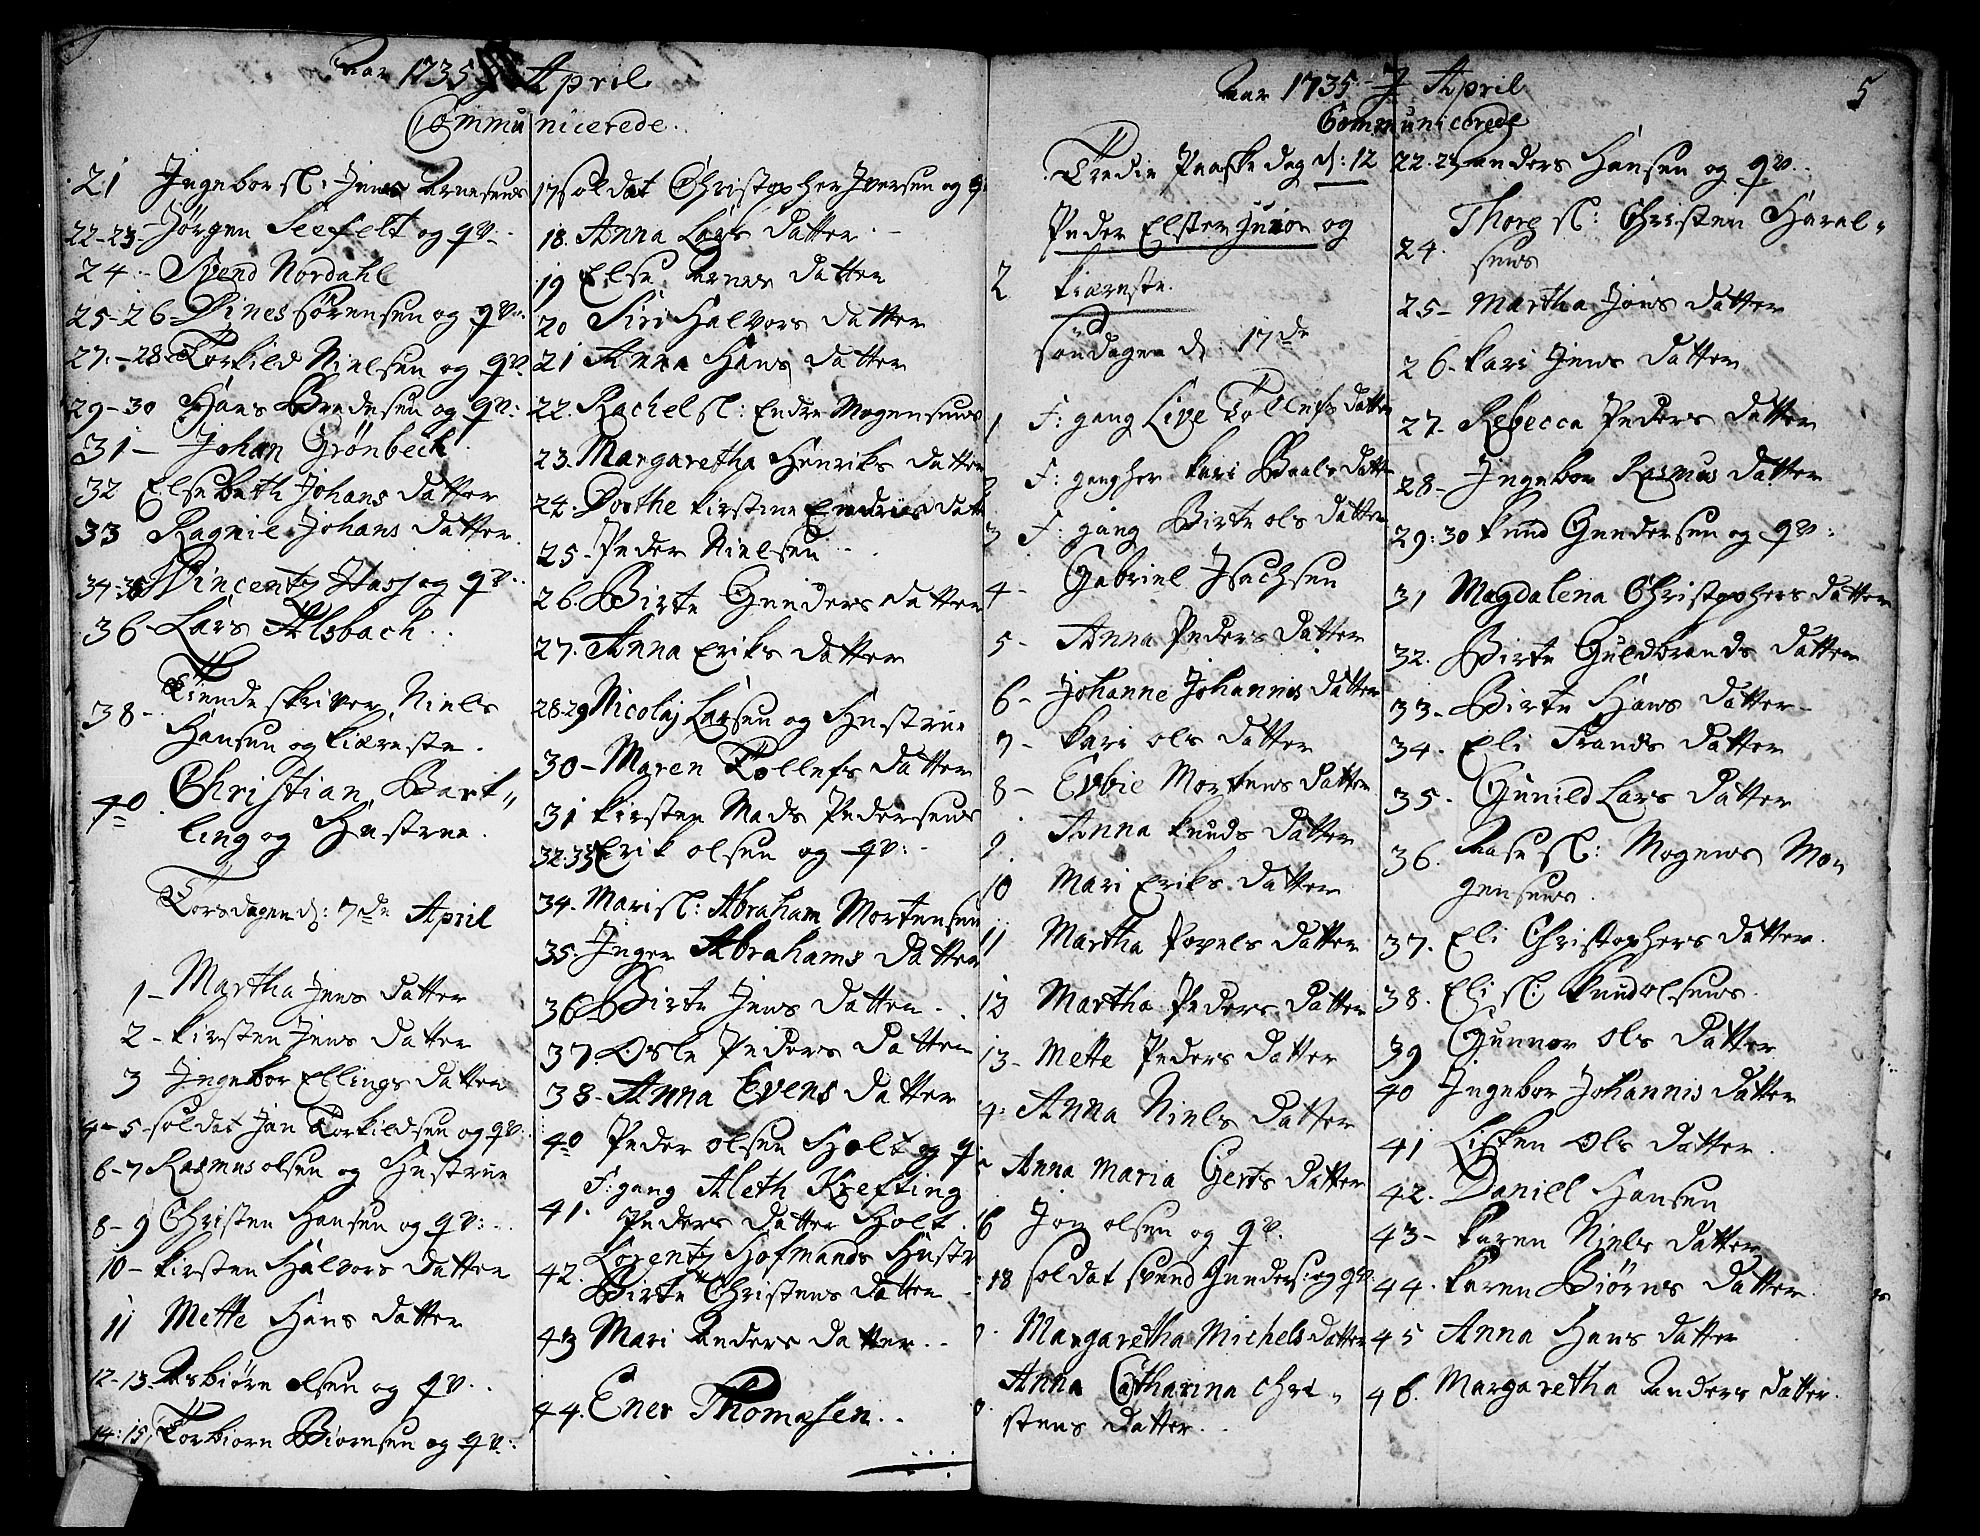 Aar 1735 April
Communicerede.
21 Ingebor sl: Jens Arnesens
22-23- Jørgen Seefelt og qv.
24.- Svend Nordahl
25-26- Dines Sørensen og qv.
27.-28- Torkild Nielsen og qv.
29-30 Hans Bredesen og qv:
31- Johan Grønbech
32 Elsebeth Johans datter
33 Ragnil Johans datter.
34-35 Vincentz Hass og qv.
36- Lars Alsbach.
Tiende skriver Niels
38- Hansen og kiæreste.
Christian Bart„
40 ling og Hustrue.
Torsdagen d: 7de April
1- Martha Jens datter
2- kirsten Jens datter
3 Ingebor Ellings datter
4-5- soldat Jan Torkildsen og qv.
6-7 Rasmus olsen og Hustrue
8-9 Christen Hansen og qv:
10- kirsten Halvors datter
11 Mette Hans datter
12-13- Asbiørn olsen og qv.
14:15, Torbiørn Biørnsen og qv.
17 soldat Christopher Iversen og q:
18. Anna Lars datter.
19 Else Arnes datter
20 Siri Halvors datter
21 Anna Hans datter
22. Rachel sl: Endre Mogensens
23. Margaretha Henriks datter
24. Dorthe kirstine datt
25- Peder Nielsen
26. Birte Gunders datter
27. Anna Eriks datter
28-29 Nicolaj Larsen og Hustrue
30- Maren Tollefs datter
31 kirsten Mads Pedersens
32:33 Erik olsen og qv:
34. Mari sl: Abraham Mortensen
35. Inger Abrahams datter
36 Birte Jens datter.
37. Osle Peders datter
38- Anna Evens datter
40 Peder olsen Holt og q
F: gang Aleth Krefting
41. Peders datter Holt.
Lorentz Hofmands Hustr
42. Birte Christens datter
43 Mari Anders datter..
44. Ener Thomasen..
Aar 1735.- J April
5
Communicerede
Tredie Paaske dag d: 12
Peder Elster junior og
2 kiæreste.
Søndagen d. 17de
1 F: gang Live Tollefs datter
2 F: gang her kari Baals datt
3 F: gang Birte ols datter
4- Gabriel Isachsen
5- Anna Peders datter
6- Johanne Johannis datter
7- kari ols datter
8- Ebbie Mortens datter
9. Anna knuds datter
10 Mari Eriks datter
11 Martha Povels datter
12 Martha Peders datter
13- Mette Peders datter
4. Anna Niels datter
Anna Maria Gerts datter
6 Jon olsen og qv.
18 soldat svend Gunders: og qv.
9. Margaretha Michels datter
Anna Catharina Chri„
0. stens datter.
22.23 anders Hansen og qv.
Thore sl: Christen Haral„
24. sens
25- Martha Jons datter
26- kari Jens datter
27- Rebecca Peders datter
28- Ingebor Rasmus datter
29:30 knud Gundersen og qv:
31 Magdalena Christophers datter
32. Birte Guldbrands datter
33- Birte Hans datter-
34. Eli Frands datter
35. Gunild Lars datter
36. Aase sl: Mogens Mo„
gensens.
37. Eli Christophers datter.
38. Eli sl: knud olsens.
39 Gunnor Ols datter
40 Ingebor Johannis datter
41 Lisken Ols datter.
42. Daniel Hansen
43- karen Niels datter
44. karen Biørns datter.
45 Anna Hans datter
46. Margaretha Anders datter.